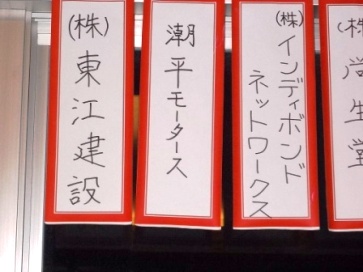 (株)東江建設
潮平モータース
(株)インディボンド
ネットワークス
(株)
生堂